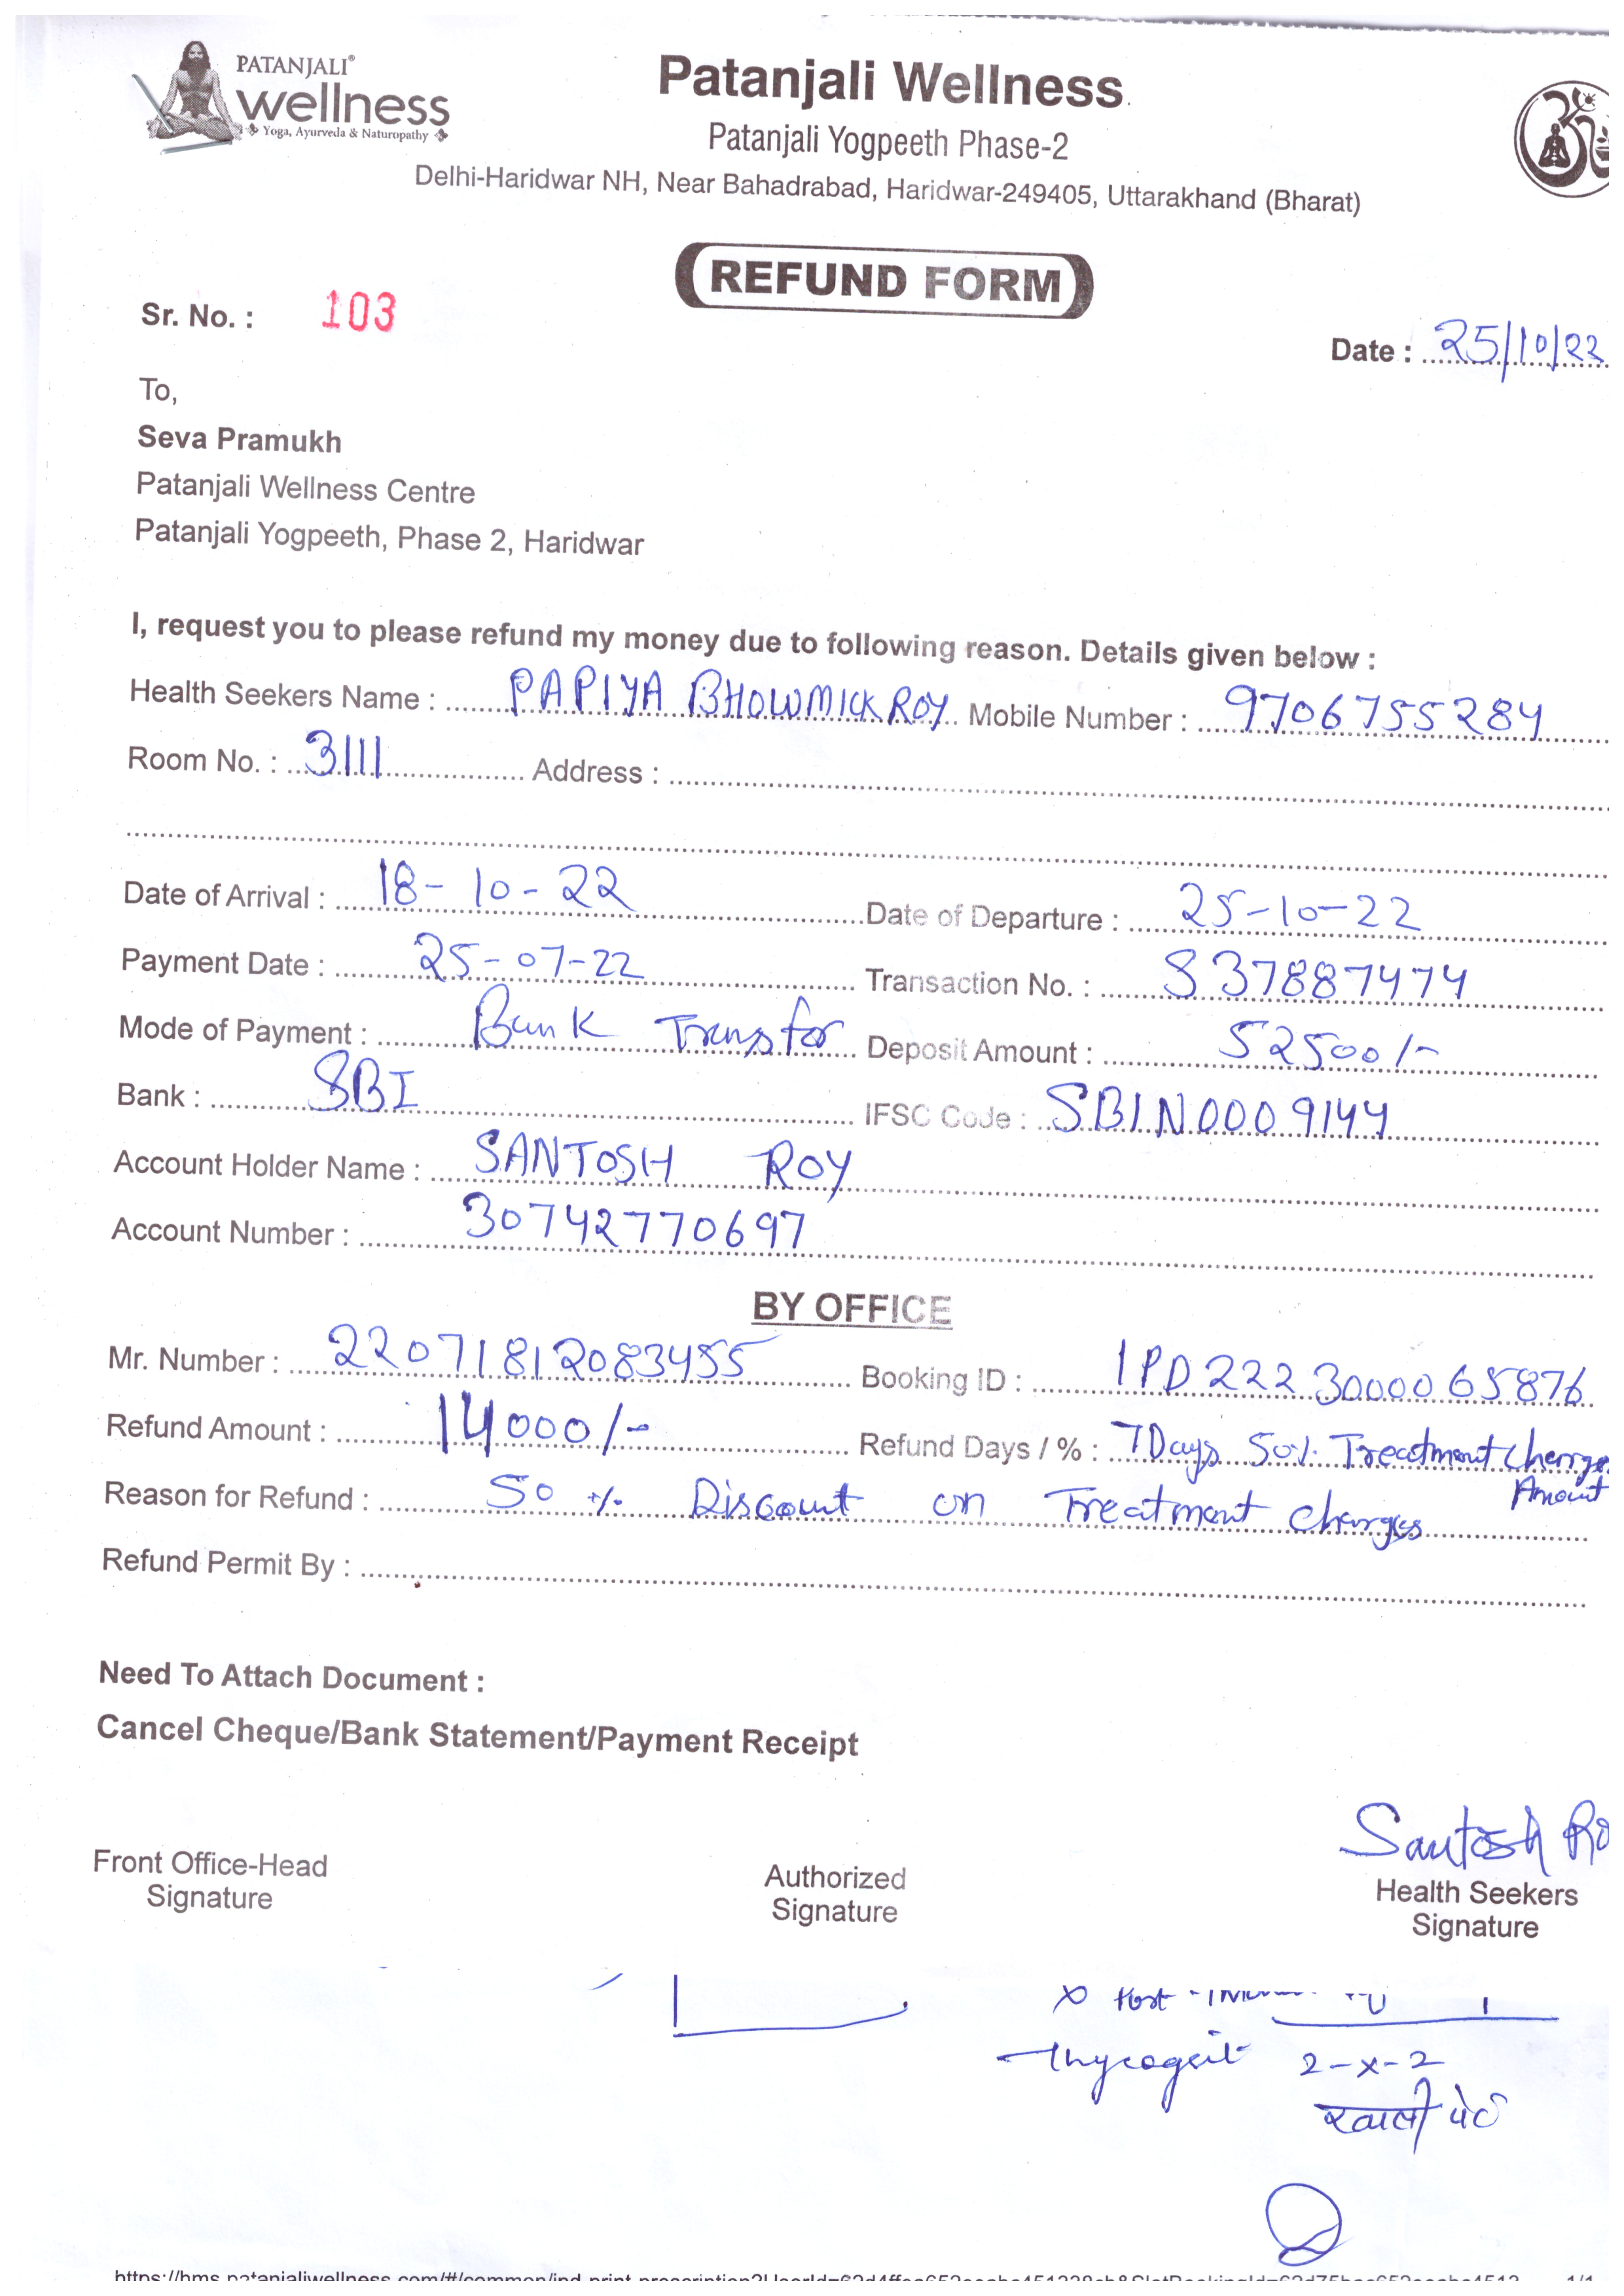 PATANJALI®
wellness
Yoga, Ayurveda & Naturopathy
Patanjali Wellness
Patanjali Yogpeeth Phase-2
Delhi-Haridwar NH, Near Bahadrabad, Haridwar-249405, Uttarakhand (Bharat)
REFUND FORM
Sr. No. : 103
Date : 25/10/22
To,
Seva Pramukh
Patanjali Wellness Centre
Patanjali Yogpeeth, Phase 2, Haridwar
I, request you to please refund my money due to following reason. Details given below :
Health Seekers Name : PAPIYA BHOWMICK ROY Mobile Number : 9706755284
Room No. : 3111 Address :
Date of Arrival : 18-10-22 Date of Departure : 25-10-22
Payment Date : 25-07-22 Transaction No. : 837887474
Mode of Payment : Bank Transfor Deposit Amount : 52500/-
Bank : SBI IFSC Code : SBIN0009144
Account Holder Name : SANTOSH ROY
Account Number : 30742770697
BY OFFICE
Mr. Number : 22071812083455 Booking ID : IPD2223000065876
Refund Amount : 14000/- Refund Days / % : 7 Days 50% Treatment Charge
Amount
Reason for Refund : 50 % Discount on Treatment charges
Refund Permit By :
Need To Attach Document :
Cancel Cheque/Bank Statement/Payment Receipt
Santosh Ro
Front Office-Head
Signature
Authorized
Signature
Health Seekers
Signature
2-x-2
खाली पेट